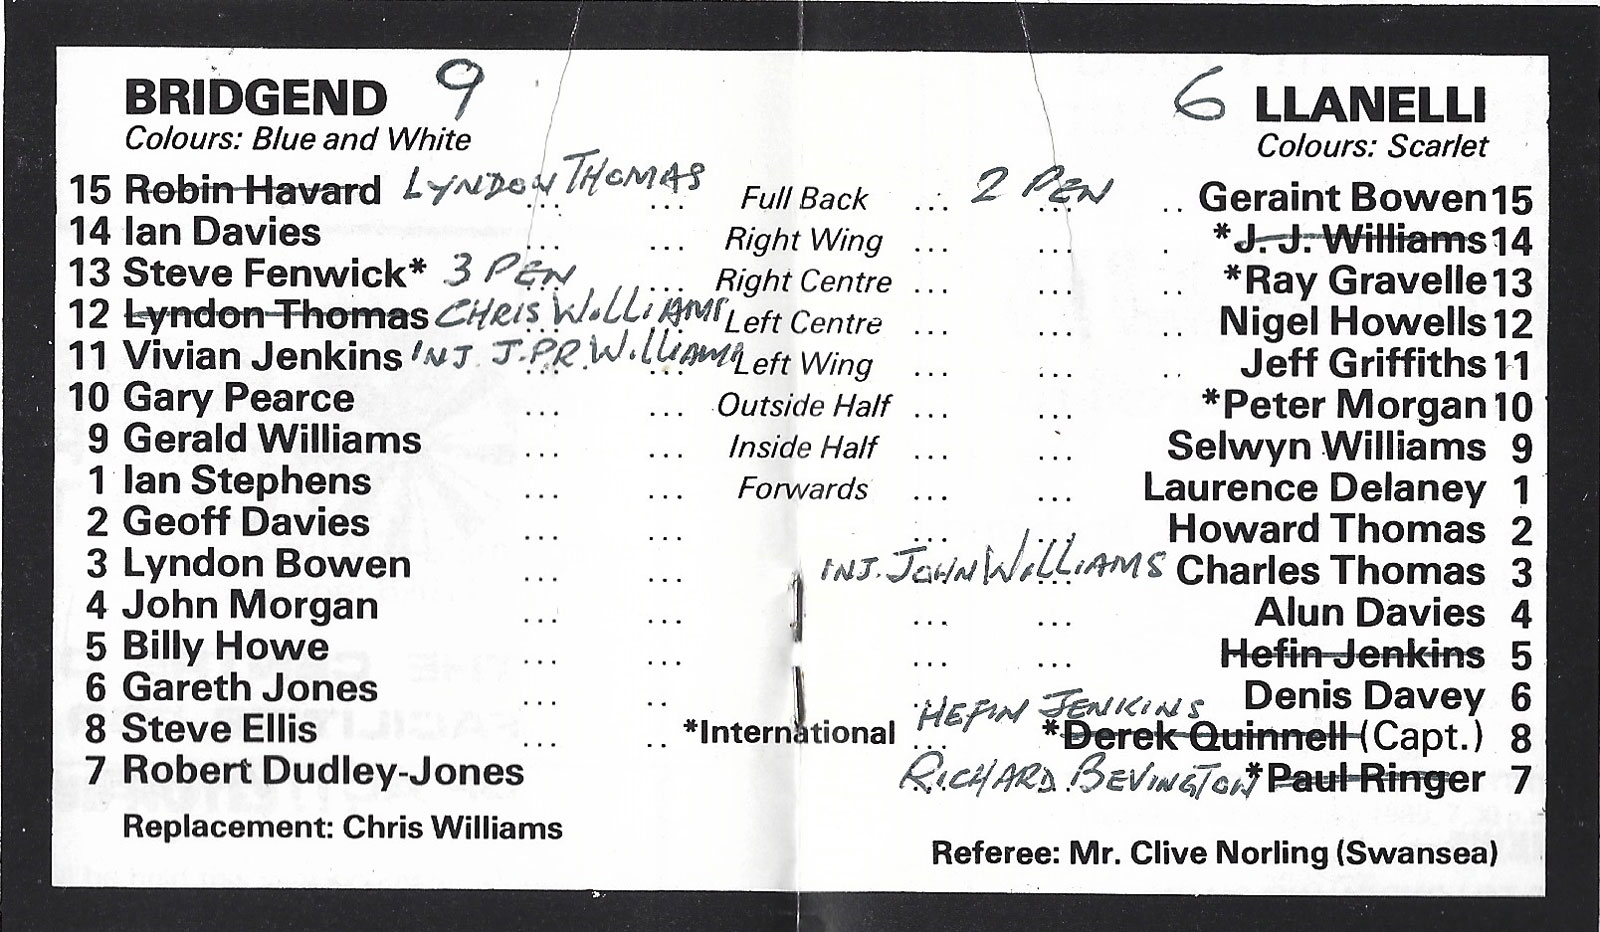 BRIDGEND 9 6 LLANELLI
Colours: Blue and White Colours: Scarlet
15 Robin Havard LYNDON THOMAS ... ... Full Back ... 2 PEN ... .. Geraint Bowen 15
14 Ian Davies ... ... Right Wing ... ... . *J. J. Williams 14
13 Steve Fenwick* 3 PEN ... Right Centre ... ... .. *Ray Gravelle 13
12 Lyndon Thomas CHRIS WILLIAMS Left Centre ... ... .. Nigel Howells 12
11 Vivian Jenkins INJ. J.P.R. WILLIAMS Left Wing ... ... .. Jeff Griffiths 11
10 Gary Pearce ... ... Outside Half ... ... *Peter Morgan 10
9 Gerald Williams ... ... Inside Half ... ... Selwyn Williams 9
1 Ian Stephens ... ... Forwards ... ... Laurence Delaney 1
2 Geoff Davies ... ... ... ... Howard Thomas 2
3 Lyndon Bowen ... ... INJ. JOHN WILLIAMS Charles Thomas 3
4 John Morgan ... ... ... ... Alun Davies 4
5 Billy Howe ... ... ... ... Hefin Jenkins 5
6 Gareth Jones ... .. Denis Davey 6
8 Steve Ellis ... .. *International ... HEFIN JENKINS *Derek Quinnell (Capt.) 8
7 Robert Dudley-Jones RICHARD BEVINGTON *Paul Ringer 7
Replacement: Chris Williams
Referee: Mr. Clive Norling (Swansea)